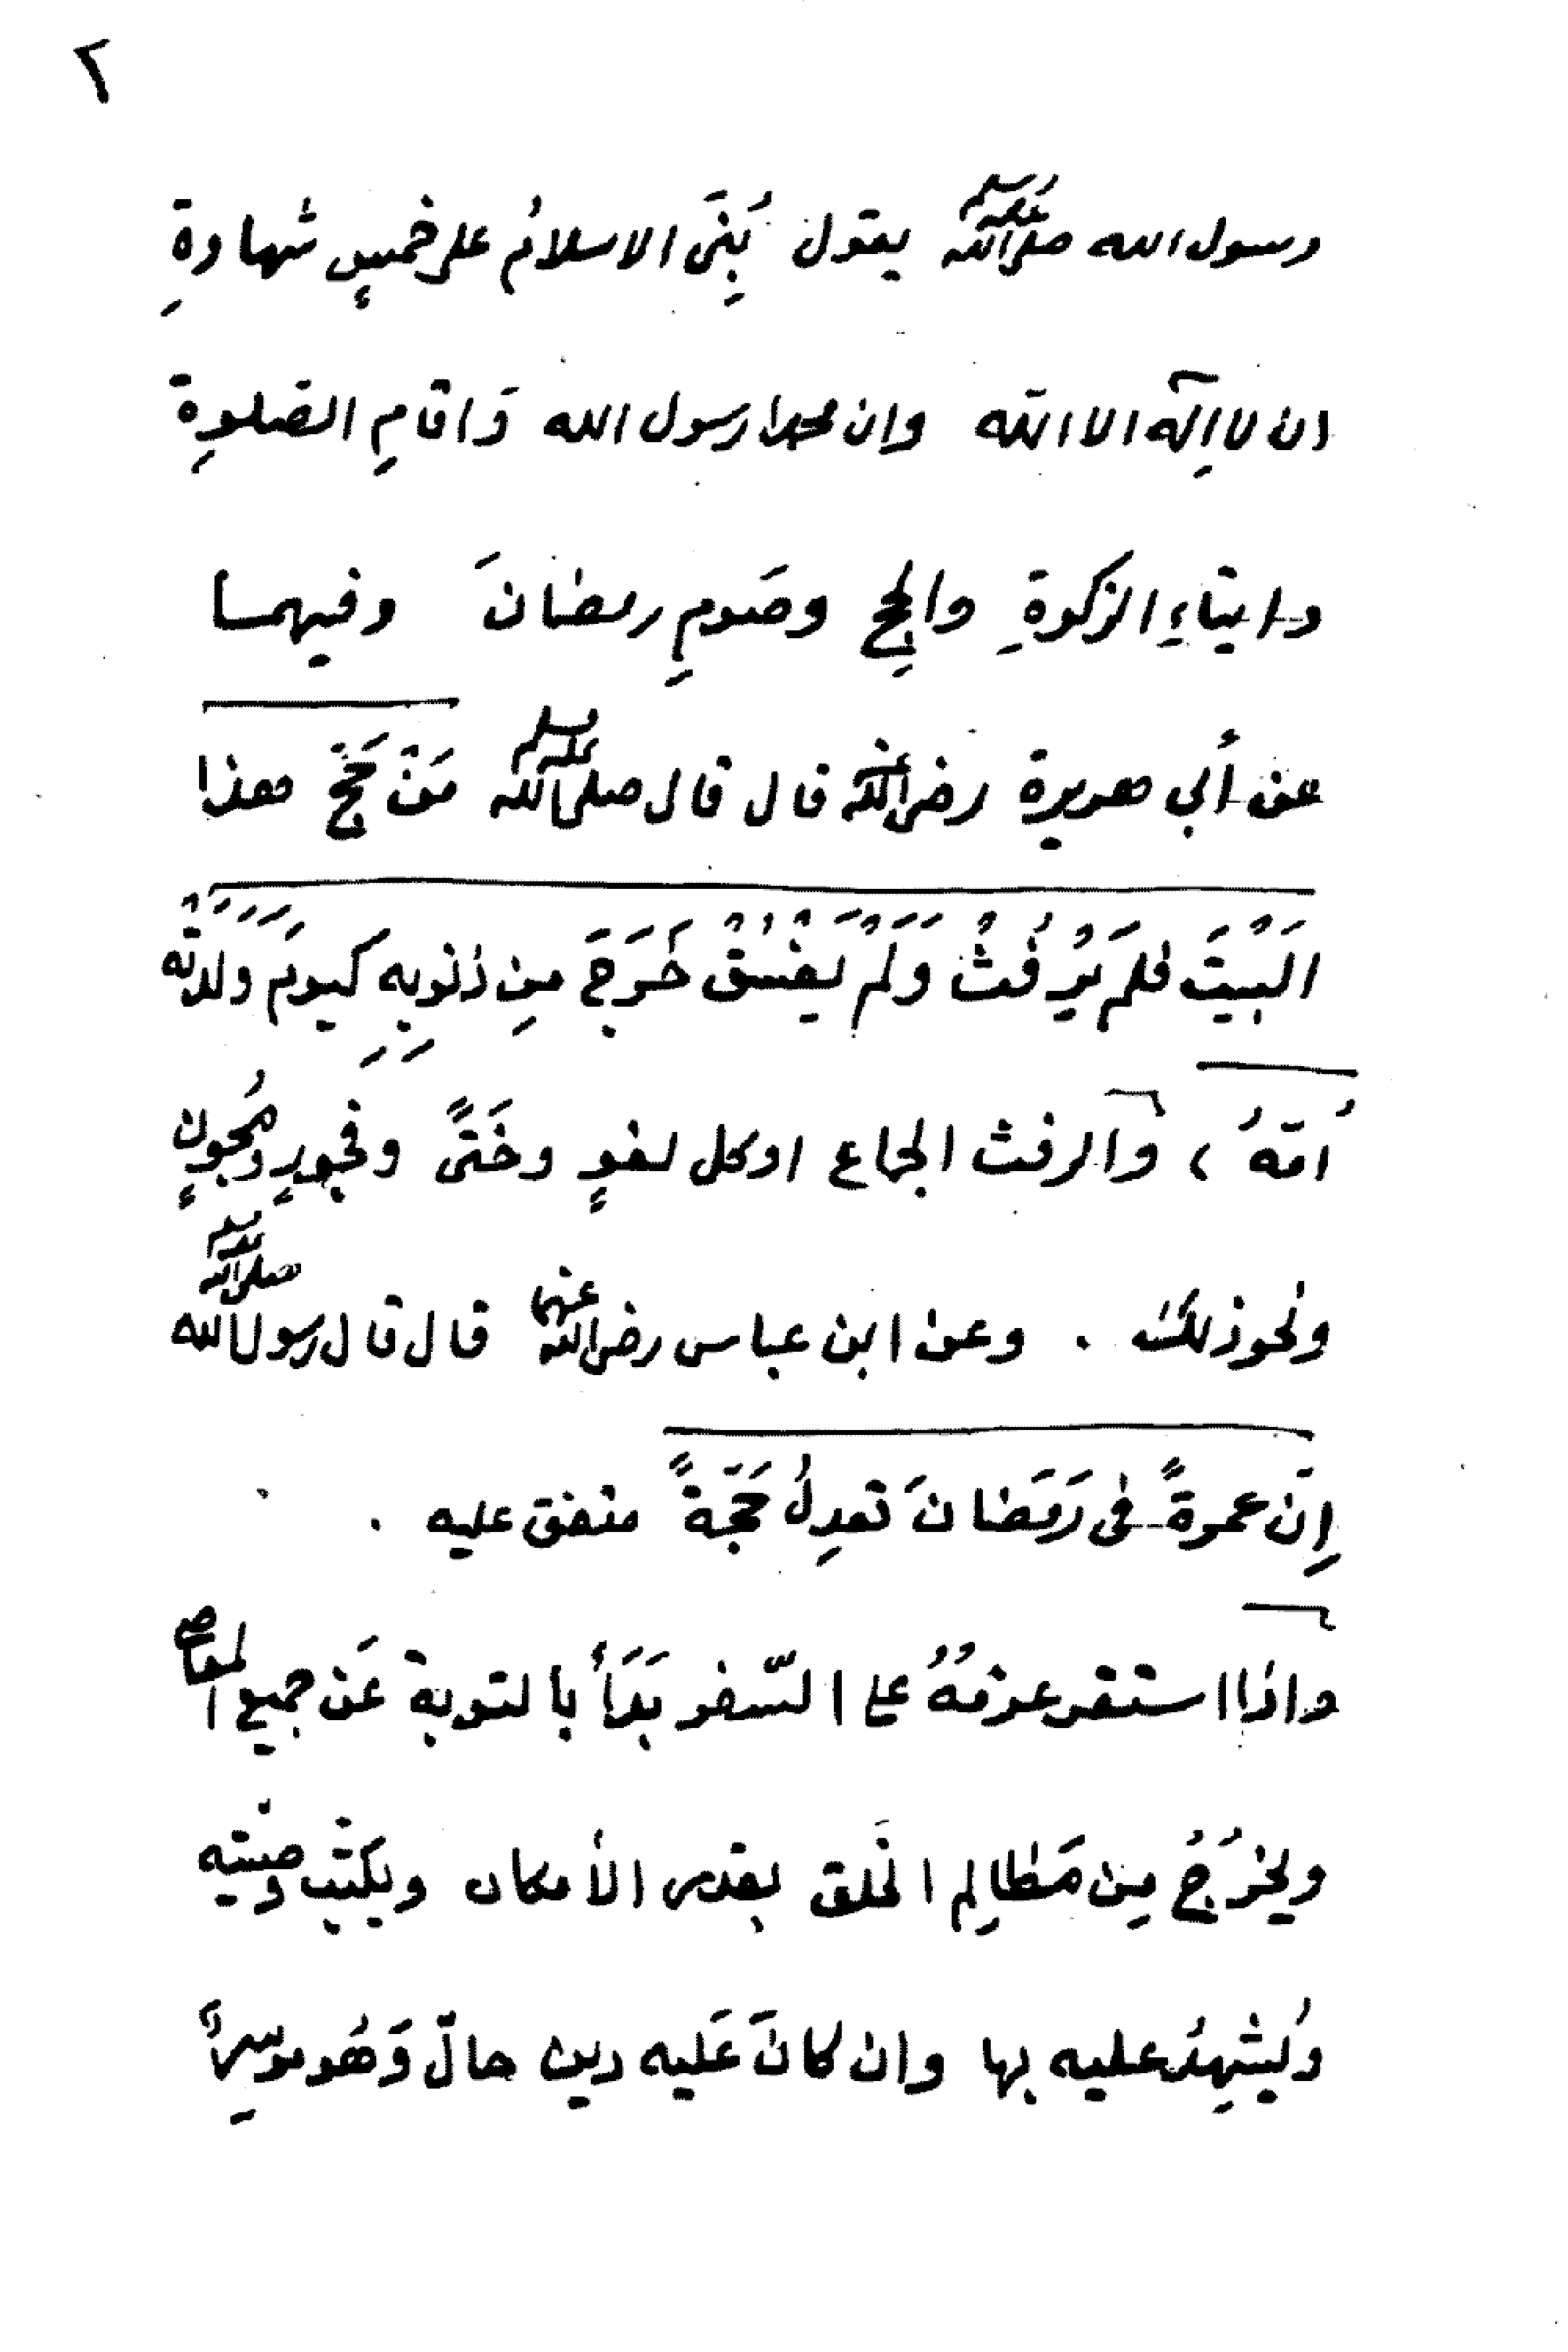 ٢
رسول الله صلى الله عليه وسلم يقول بُنِىَ الاسلامُ على خمسٍ شهادةِ
ان لا اِلٓه الا الله وان محمدا رسول الله وَاقامِ الصّلوِة
وايتاءِ الزكوةِ والحِج وصَومِ رمضانَ وفيهما
عن أُبي هريرة رضى الله عنه قال قال صلى الله عليه وسلم مَنْ حَجّ هذا
البَيْتَ فلمَ يَرْفُثْ وَلَمْ يَفْسُقْ خَرَجَ مِن ذنوبِهِ كَيومَ ولدَتْه
اُمّهُ ، والرفث الجماع او كل لغوٍ وخَنًى وفجورٍ ومُجونٍ
ونحو ذلك . وعن ابن عباس رضى الله عنهما قال قال رسول الله صلى الله عليه وسلم
اِنّ عمرةً فى رَمَضانَ تعدِلُ حَجّةً متفق عليه .
واذا استقر عزمُهُ على السّفر بَدَأَ بالتوبة عَن جميع المعاصي
ويخرُجُ مِن مَظالِم الخَلق بقدر الأمكان ويكتب وصيته
ويُشهِدُ عليه بها وان كانَ عَليه دين حالّ وَهُو موسِراً